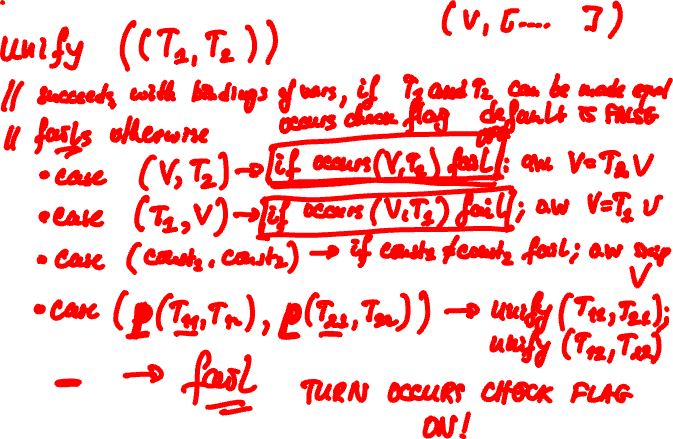 (V, [.... ])
unify ((T₁, T₂))
// succeeds with bindings of vars, if T₁ and T₂ can be made equal
occurs check flag default is FALSE
// fails otherwise
OFF
• case (V, T₂) → if occurs (V, T₂) fail; ow V=T₂ √
• case (T₁, V) → if occurs (V, T₁) fail; ow V=T₁ √
• case (const₁, const₂) → if const₁ ≠ const₂ fail; ow skip
√
• case (p(T₁₁, T₁₂), p(T₂₁, T₂₂)) → unify (T₁₁, T₂₁);
unify (T₁₂, T₂₂)
_ → fail
TURN OCCURS CHECK FLAG
ON!